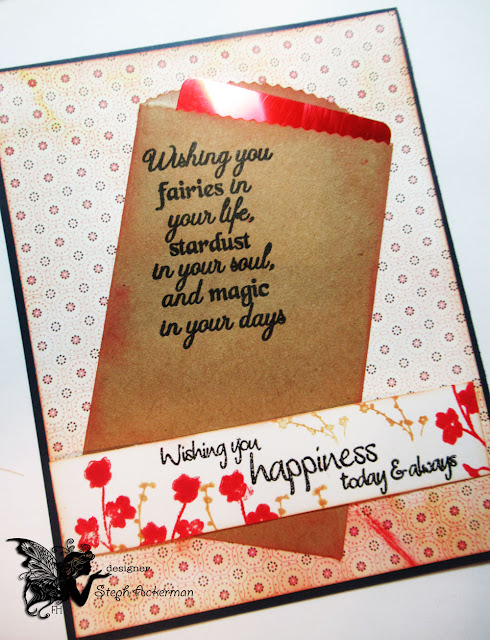 Wishing you
fairies in
your life,
stardust
in your soul,
and magic
in your days
Wishing you
happiness
today & always
designer
Steph Ackerman
FH